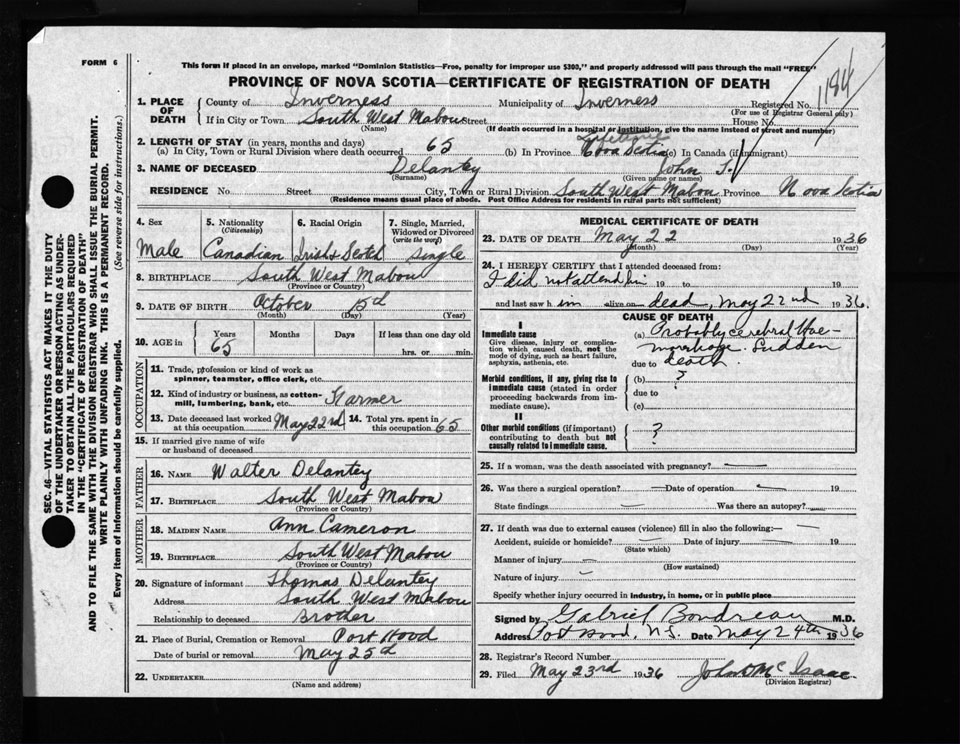 FORM 6
This form if placed in an envelope, marked "Dominion Statistics—Free, penalty for improper use $300," and properly addressed will pass through the mail "FREE"
PROVINCE OF NOVA SCOTIA—CERTIFICATE OF REGISTRATION OF DEATH
1184
1. PLACE OF DEATH
County of Inverness Municipality of Inverness Registered No.
(For use of Registrar General only)
If in City or Town South West Mabou Street House No.
(Name) (If death occurred in a hospital or institution, give the name instead of street and number)
2. LENGTH OF STAY (in years, months and days)
Lifetime
(a) In City, Town or Rural Division where death occurred 65 (b) In Province Nova Scotia (c) In Canada (if immigrant)
3. NAME OF DECEASED Delantey John J.
(Surname) (Given name or names)
RESIDENCE No. Street City, Town or Rural Division South West Mabou Province Nova Scotia
(Residence means usual place of abode. Post Office Address for residents in rural parts not sufficient)
4. Sex Male
5. Nationality (Citizenship) Canadian
6. Racial Origin Irish & Scotch
7. Single, Married, Widowed or Divorced (write the word) Single
8. BIRTHPLACE South West Mabou
(Province or Country)
9. DATE OF BIRTH October
(Month) (Day) (Year)
10. AGE in Years 65 Months Days If less than one day old hrs. or min.
OCCUPATION
11. Trade, profession or kind of work as spinner, teamster, office clerk, etc.
12. Kind of industry or business, as cotton-mill, lumbering, bank, etc. Farmer
13. Date deceased last worked at this occupation May 22nd 14. Total yrs. spent in this occupation 65
15. If married give name of wife or husband of deceased
FATHER
16. NAME Walter Delantey
17. BIRTHPLACE South West Mabou
(Province or Country)
MOTHER
18. MAIDEN NAME Ann Cameron
19. BIRTHPLACE South West Mabou
(Province or Country)
20. Signature of informant Thomas Delantey
Address South West Mabou
Relationship to deceased Brother
21. Place of Burial, Cremation or Removal Port Hood
Date of burial or removal May 25th
22. UNDERTAKER
(Name and address)
MEDICAL CERTIFICATE OF DEATH
23. DATE OF DEATH May 22 1936
(Month) (Day) (Year)
24. I HEREBY CERTIFY that I attended deceased from:
I did not attend him 19 to 19
and last saw h im alive on dead, May 22nd 1936.
CAUSE OF DEATH
I
Immediate cause
Give disease, injury or complication which caused death, not the mode of dying, such as heart failure, asphyxia, asthenia, etc.
(a) Probably cerebral Hae-
morrhage. Sudden
due to death
Morbid conditions, if any, giving rise to immediate cause (stated in order proceeding backwards from immediate cause).
(b) ?
due to
(c)
II
Other morbid conditions (if important) contributing to death but not causally related to immediate cause.
?
25. If a woman, was the death associated with pregnancy? —
26. Was there a surgical operation? — Date of operation — 19
State findings — Was there an autopsy? —
27. If death was due to external causes (violence) fill in also the following:— —
Accident, suicide or homicide? — Date of injury — 19
(State which)
Manner of injury —
(How sustained)
Nature of injury —
Specify whether injury occurred in industry, in home, or in public place
Signed by Gabriel Boudreau M.D.
Address Port Hood, N.S. Date May 24th 1936
28. Registrar's Record Number
29. Filed May 23rd 1936 John McIsaac
(Division Registrar)
SEC. 46—VITAL STATISTICS ACT MAKES IT THE DUTY
OF THE UNDERTAKER OR PERSON ACTING AS UNDER-
TAKER TO OBTAIN ALL THE PARTICULARS REQUIRED
IN THE "CERTIFICATE OF REGISTRATION OF DEATH"
AND TO FILE THE SAME WITH THE DIVISION REGISTRAR WHO SHALL ISSUE THE BURIAL PERMIT.
WRITE PLAINLY WITH UNFADING INK. THIS IS A PERMANENT RECORD.
Every item of information should be carefully supplied. (See reverse side for instructions.)